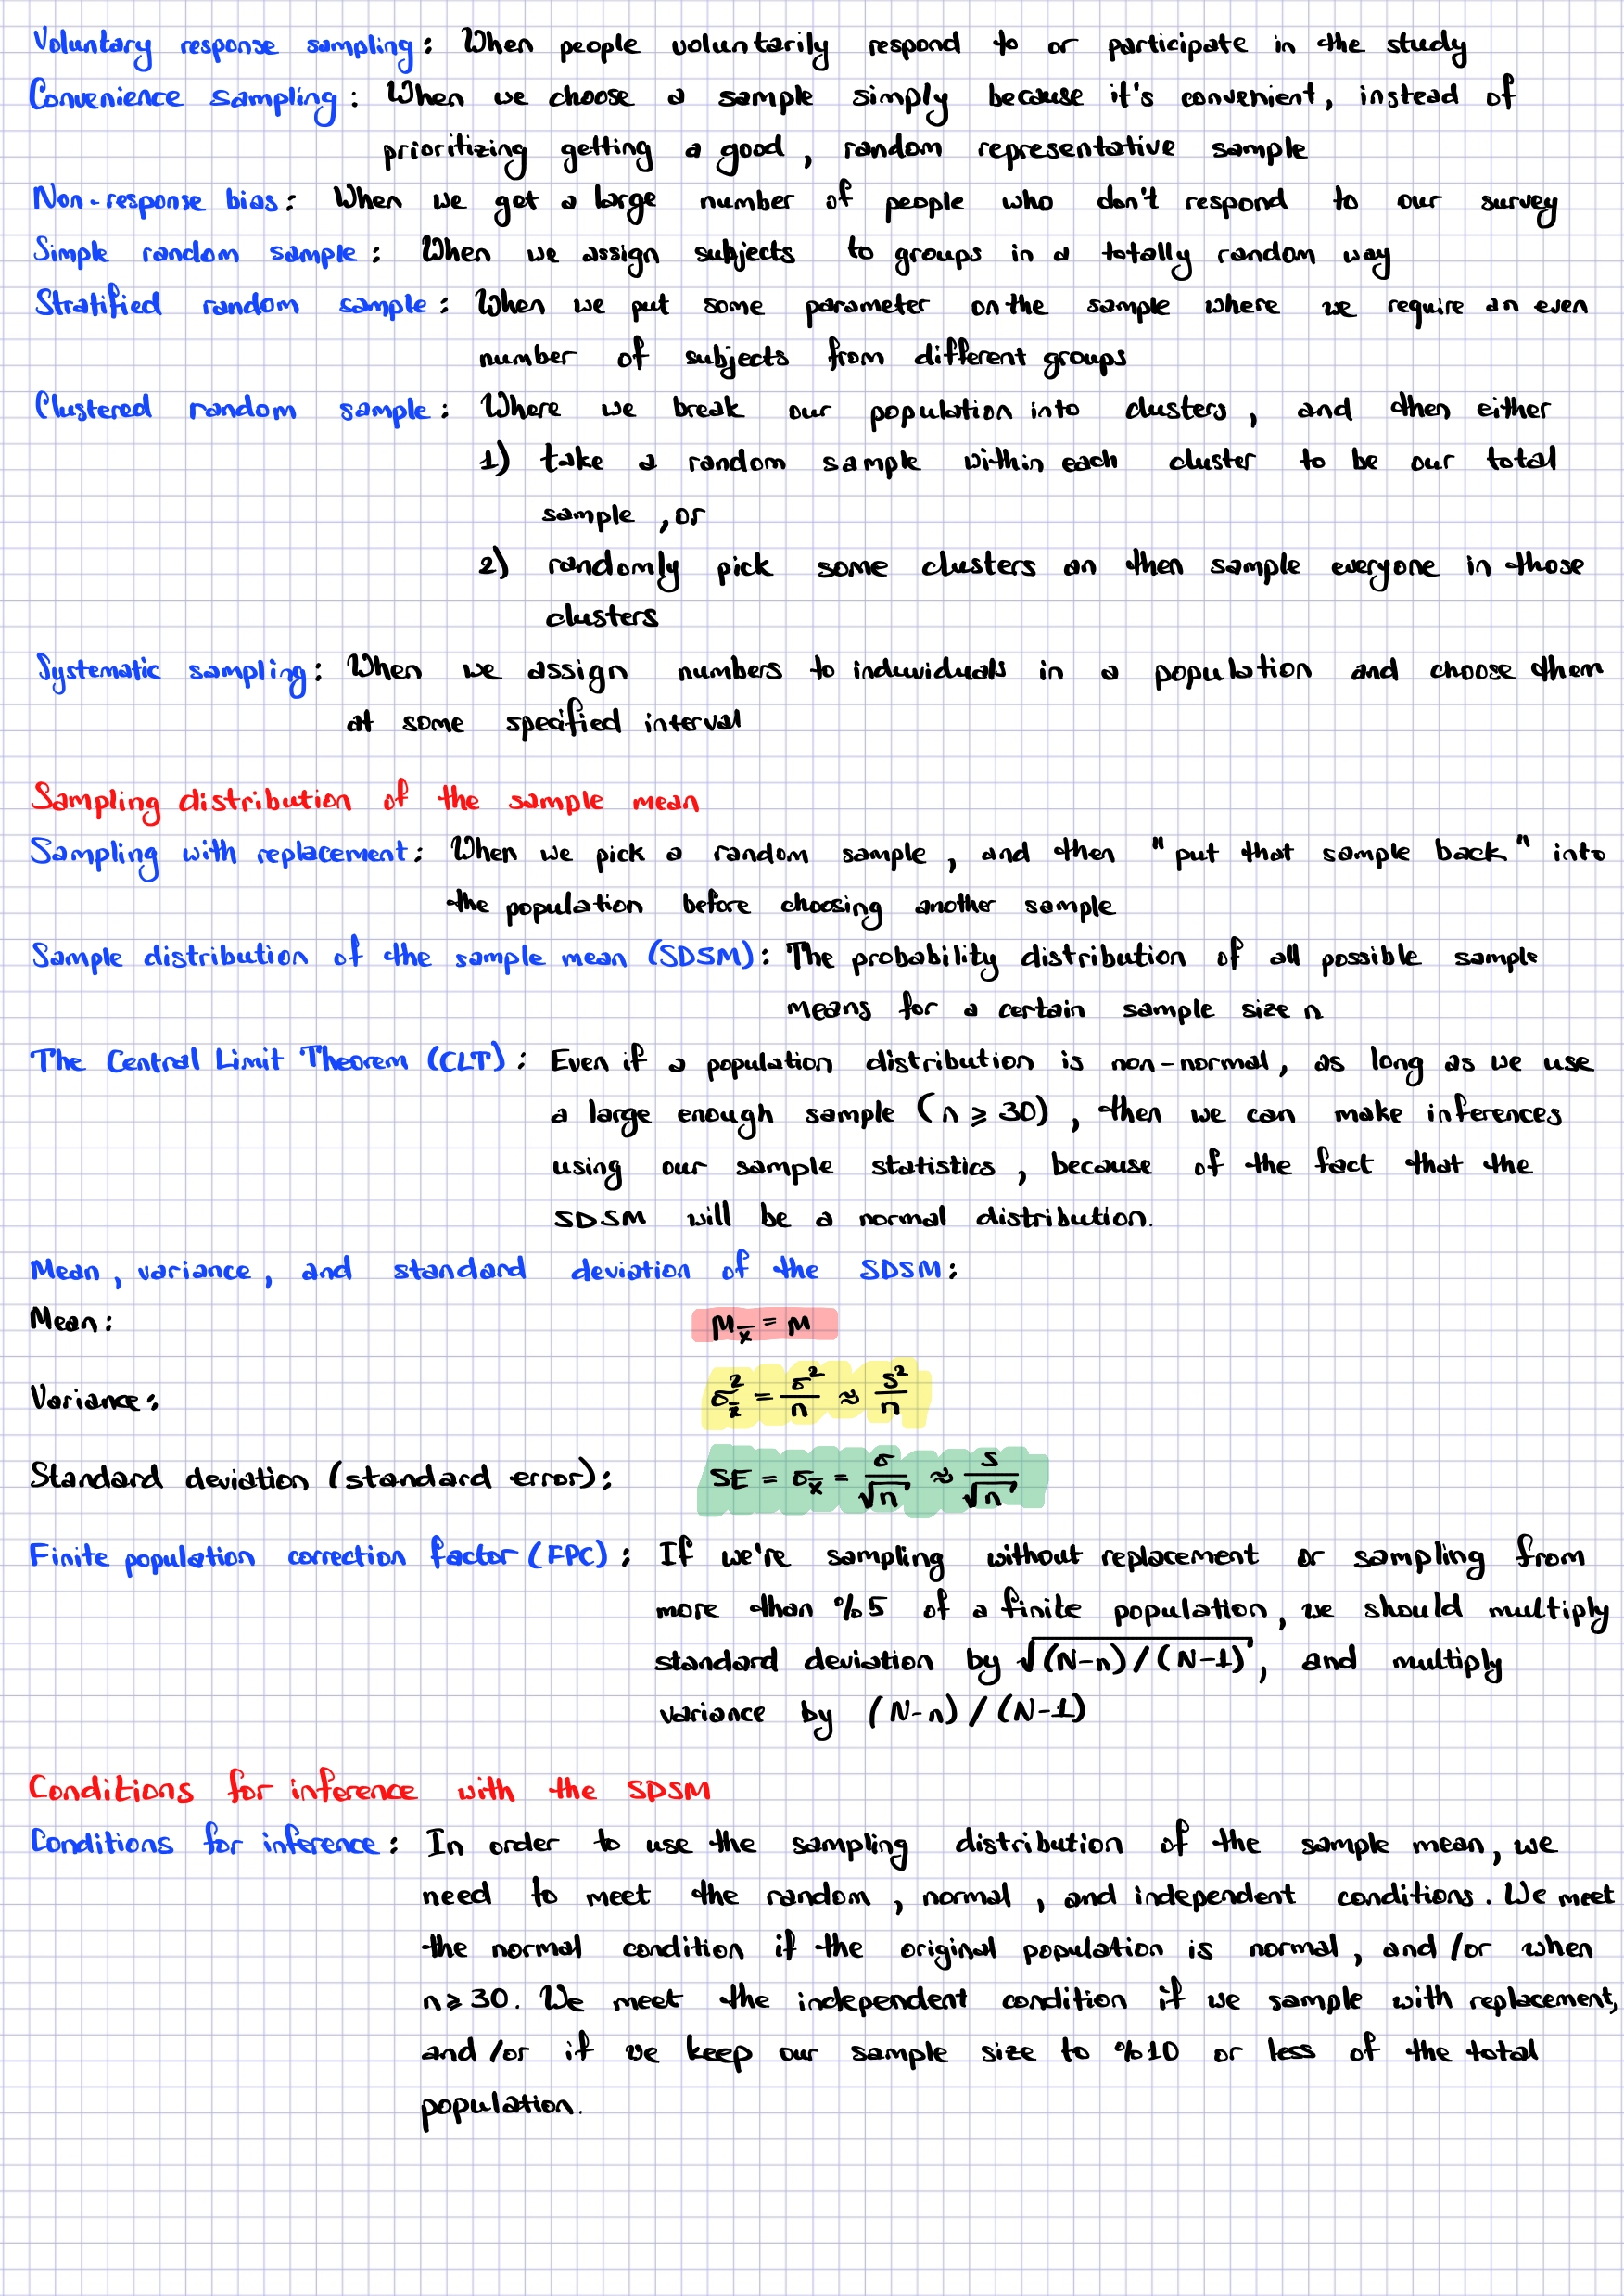 Voluntary response sampling: When people voluntarily respond to or participate in the study
Convenience sampling: When we choose a sample simply because it's convenient, instead of
prioritizing getting a good, random representative sample
Non-response bias: When we get a large number of people who don't respond to our survey
Simple random sample: When we assign subjects to groups in a totally random way
Stratified random sample: When we put some parameter on the sample where we require an even
number of subjects from different groups
Clustered random sample: Where we break our population into clusters, and then either
1) take a random sample within each cluster to be our total
sample, or
2) randomly pick some clusters an then sample everyone in those
clusters
Systematic sampling: When we assign numbers to induviduals in a population and choose them
at some specified interval
Sampling distribution of the sample mean
Sampling with replacement: When we pick a random sample, and then "put that sample back" into
the population before choosing another sample
Sample distribution of the sample mean (SDSM): The probability distribution of all possible sample
means for a certain sample size n
The Central Limit Theorem (CLT): Even if a population distribution is non-normal, as long as we use
a large enough sample (n ⩾ 30), then we can make inferences
using our sample statistics, because of the fact that the
SDSM will be a normal distribution.
Mean, variance, and standard deviation of the SDSM:
Mean: μ_x̄ = μ
Variance: σ²_x̄ = σ²/n ≈ s²/n
Standard deviation (standard error): SE = σ_x̄ = σ/√n ≈ s/√n
Finite population correction factor (FPC): If we're sampling without replacement or sampling from
more than %5 of a finite population, we should multiply
standard deviation by √(N-n)/(N-1), and multiply
variance by (N-n)/(N-1)
Conditions for inference with the SDSM
Conditions for inference: In order to use the sampling distribution of the sample mean, we
need to meet the random, normal, and independent conditions. We meet
the normal condition if the original population is normal, and/or when
n⩾30. We meet the independent condition if we sample with replacement,
and/or if we keep our sample size to %10 or less of the total
population.